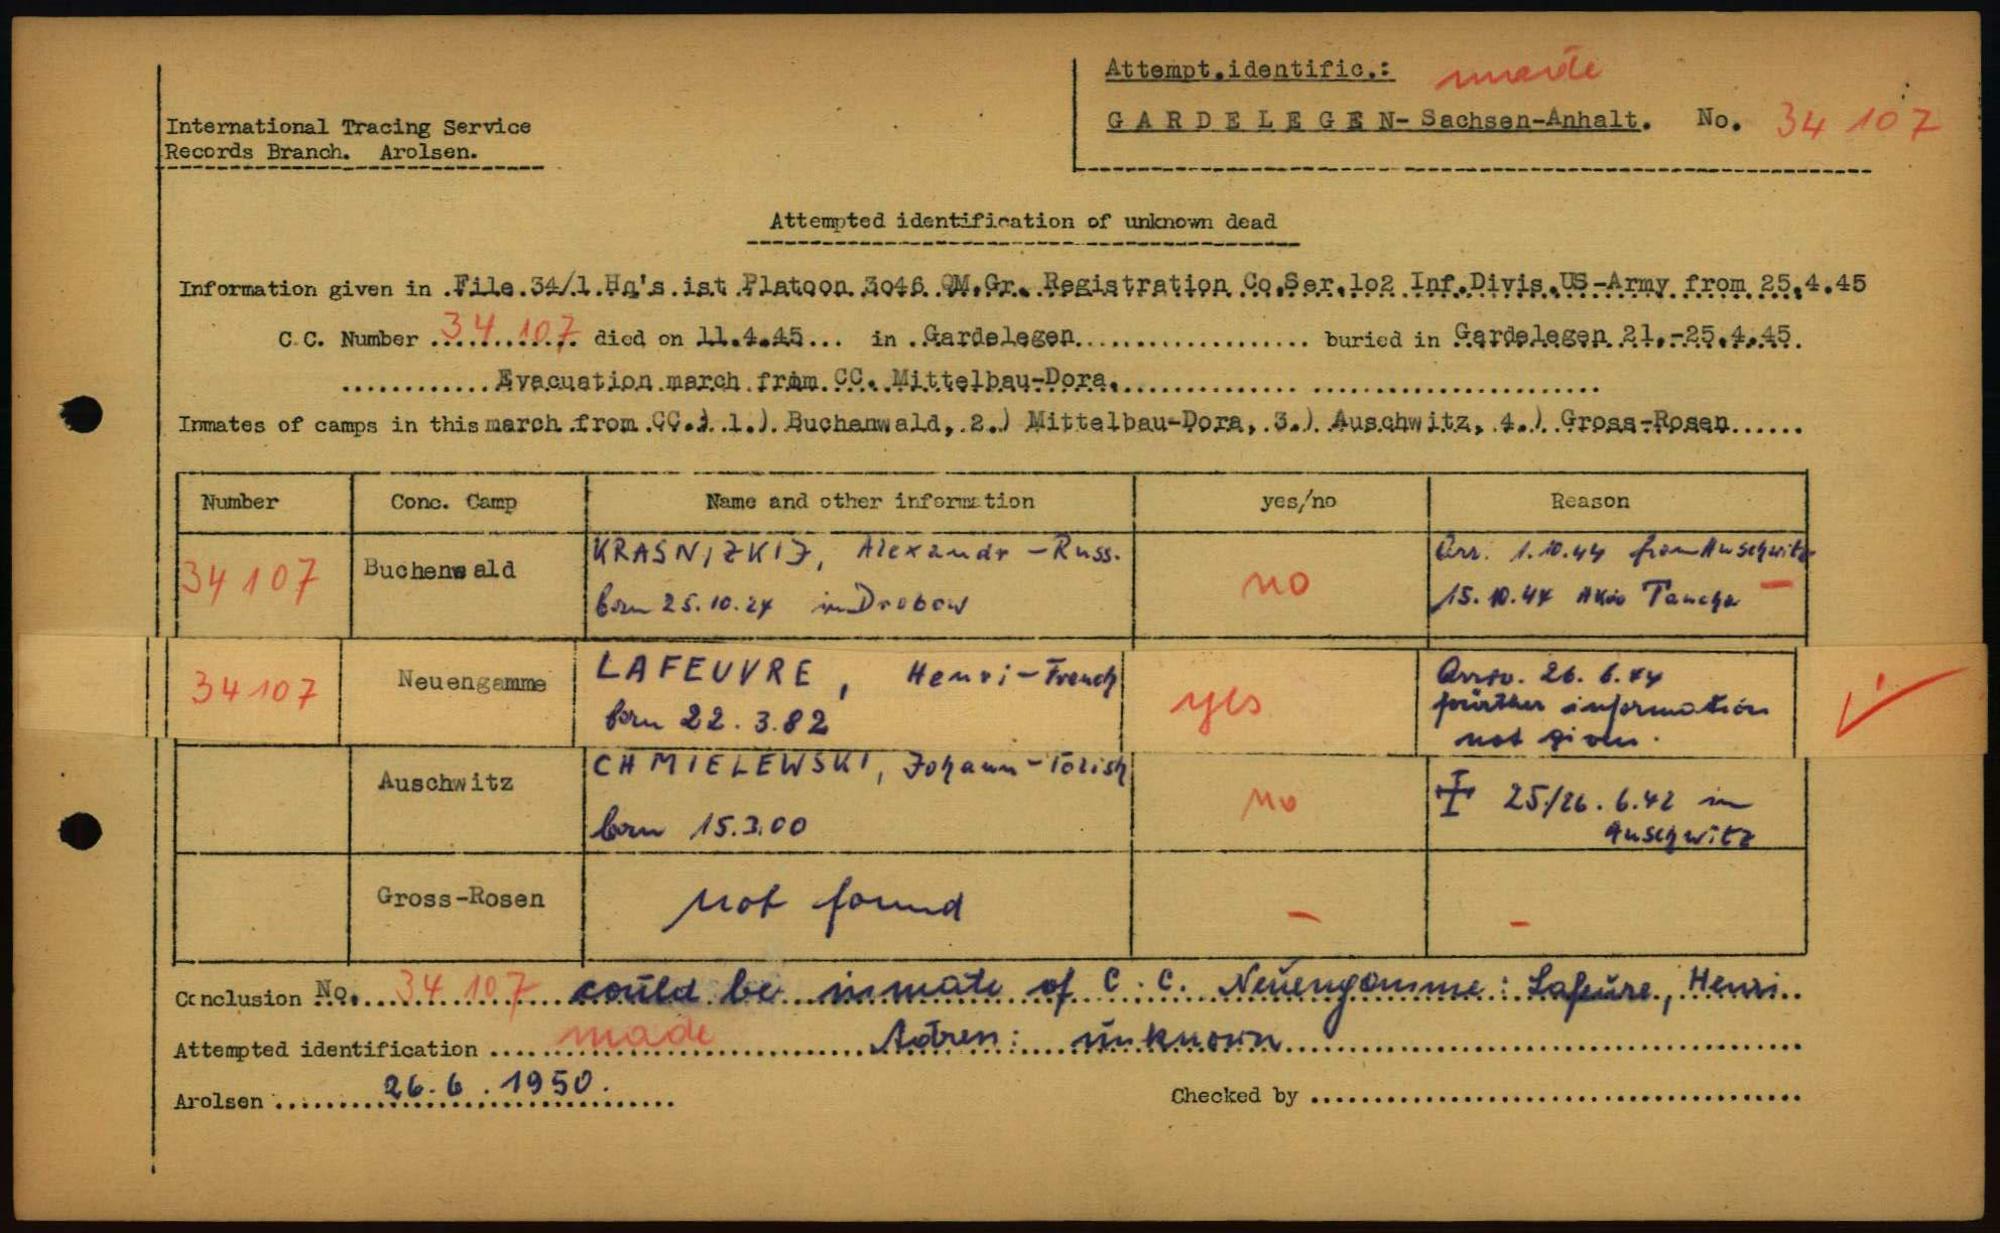 Attempt.identific.: made
GARDELEGEN-Sachsen-Anhalt. No. 34 107
International Tracing Service
Records Branch. Arolsen.
Attempted identification of unknown dead
Information given in File 34/1 Hq's ist Platoon 3o46 QM.Gr. Registration Co.Ser.1o2 Inf.Divis.US-Army from 25.4.45
C.C. Number 34 107 died on 11.4.45... in .Gardelegen.................... buried in Gardelegen 21.-25.4.45.
............Evacuation march from CC. Mittelbau-Dora.
Inmates of camps in this march from CC.: 1.) Buchenwald, 2.) Mittelbau-Dora, 3.) Auschwitz, 4.) Gross-Rosen......
Number Conc. Camp Name and other information yes/no Reason
34 107 Buchenwald KRASNIZKIJ, Alexandr - Russ. no Arr. 1.10.44 from Auschwitz
born 25.10.24 in Drobow 15.10.44 Akdo Taucha -
34107 Neuengamme LAFEUVRE, Henri - French yes Arrv. 26. 6. 44
born 22. 3. 82 further information
not given.
Auschwitz CHMIELEWSKI, Johann - Polish no 25/26. 6. 42 in
born 15.3.00 Auschwitz
Gross-Rosen not found - -
Conclusion No. 34 107 could be inmate of C. C. Neuengamme: Lafeure, Henri..
Attempted identification made Adren: unknown
Arolsen 26. 6. 1950. Checked by